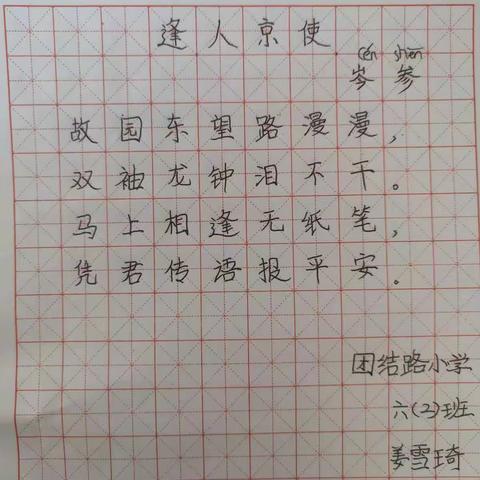 逢人京使
cén shēn
岑参
故园东望路漫漫，
双袖龙钟泪不干。
马上相逢无纸笔，
凭君传语报平安。
团结路小学
六(2)班
姜雪琦